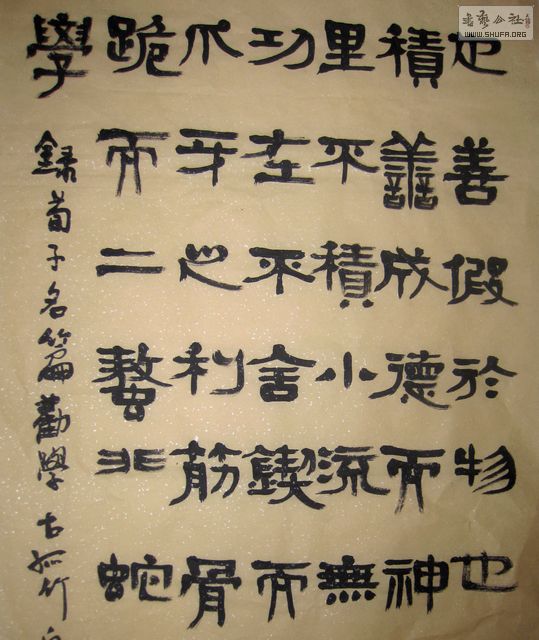 也善假於物也
積譱成德而神
里不積小流無
功在不舍鍥而
爪牙之利筋骨
跪而二螯非蛇
學
錄荀子名篇勸學古孤竹
书艺公社
WWW.SHUFA.ORG